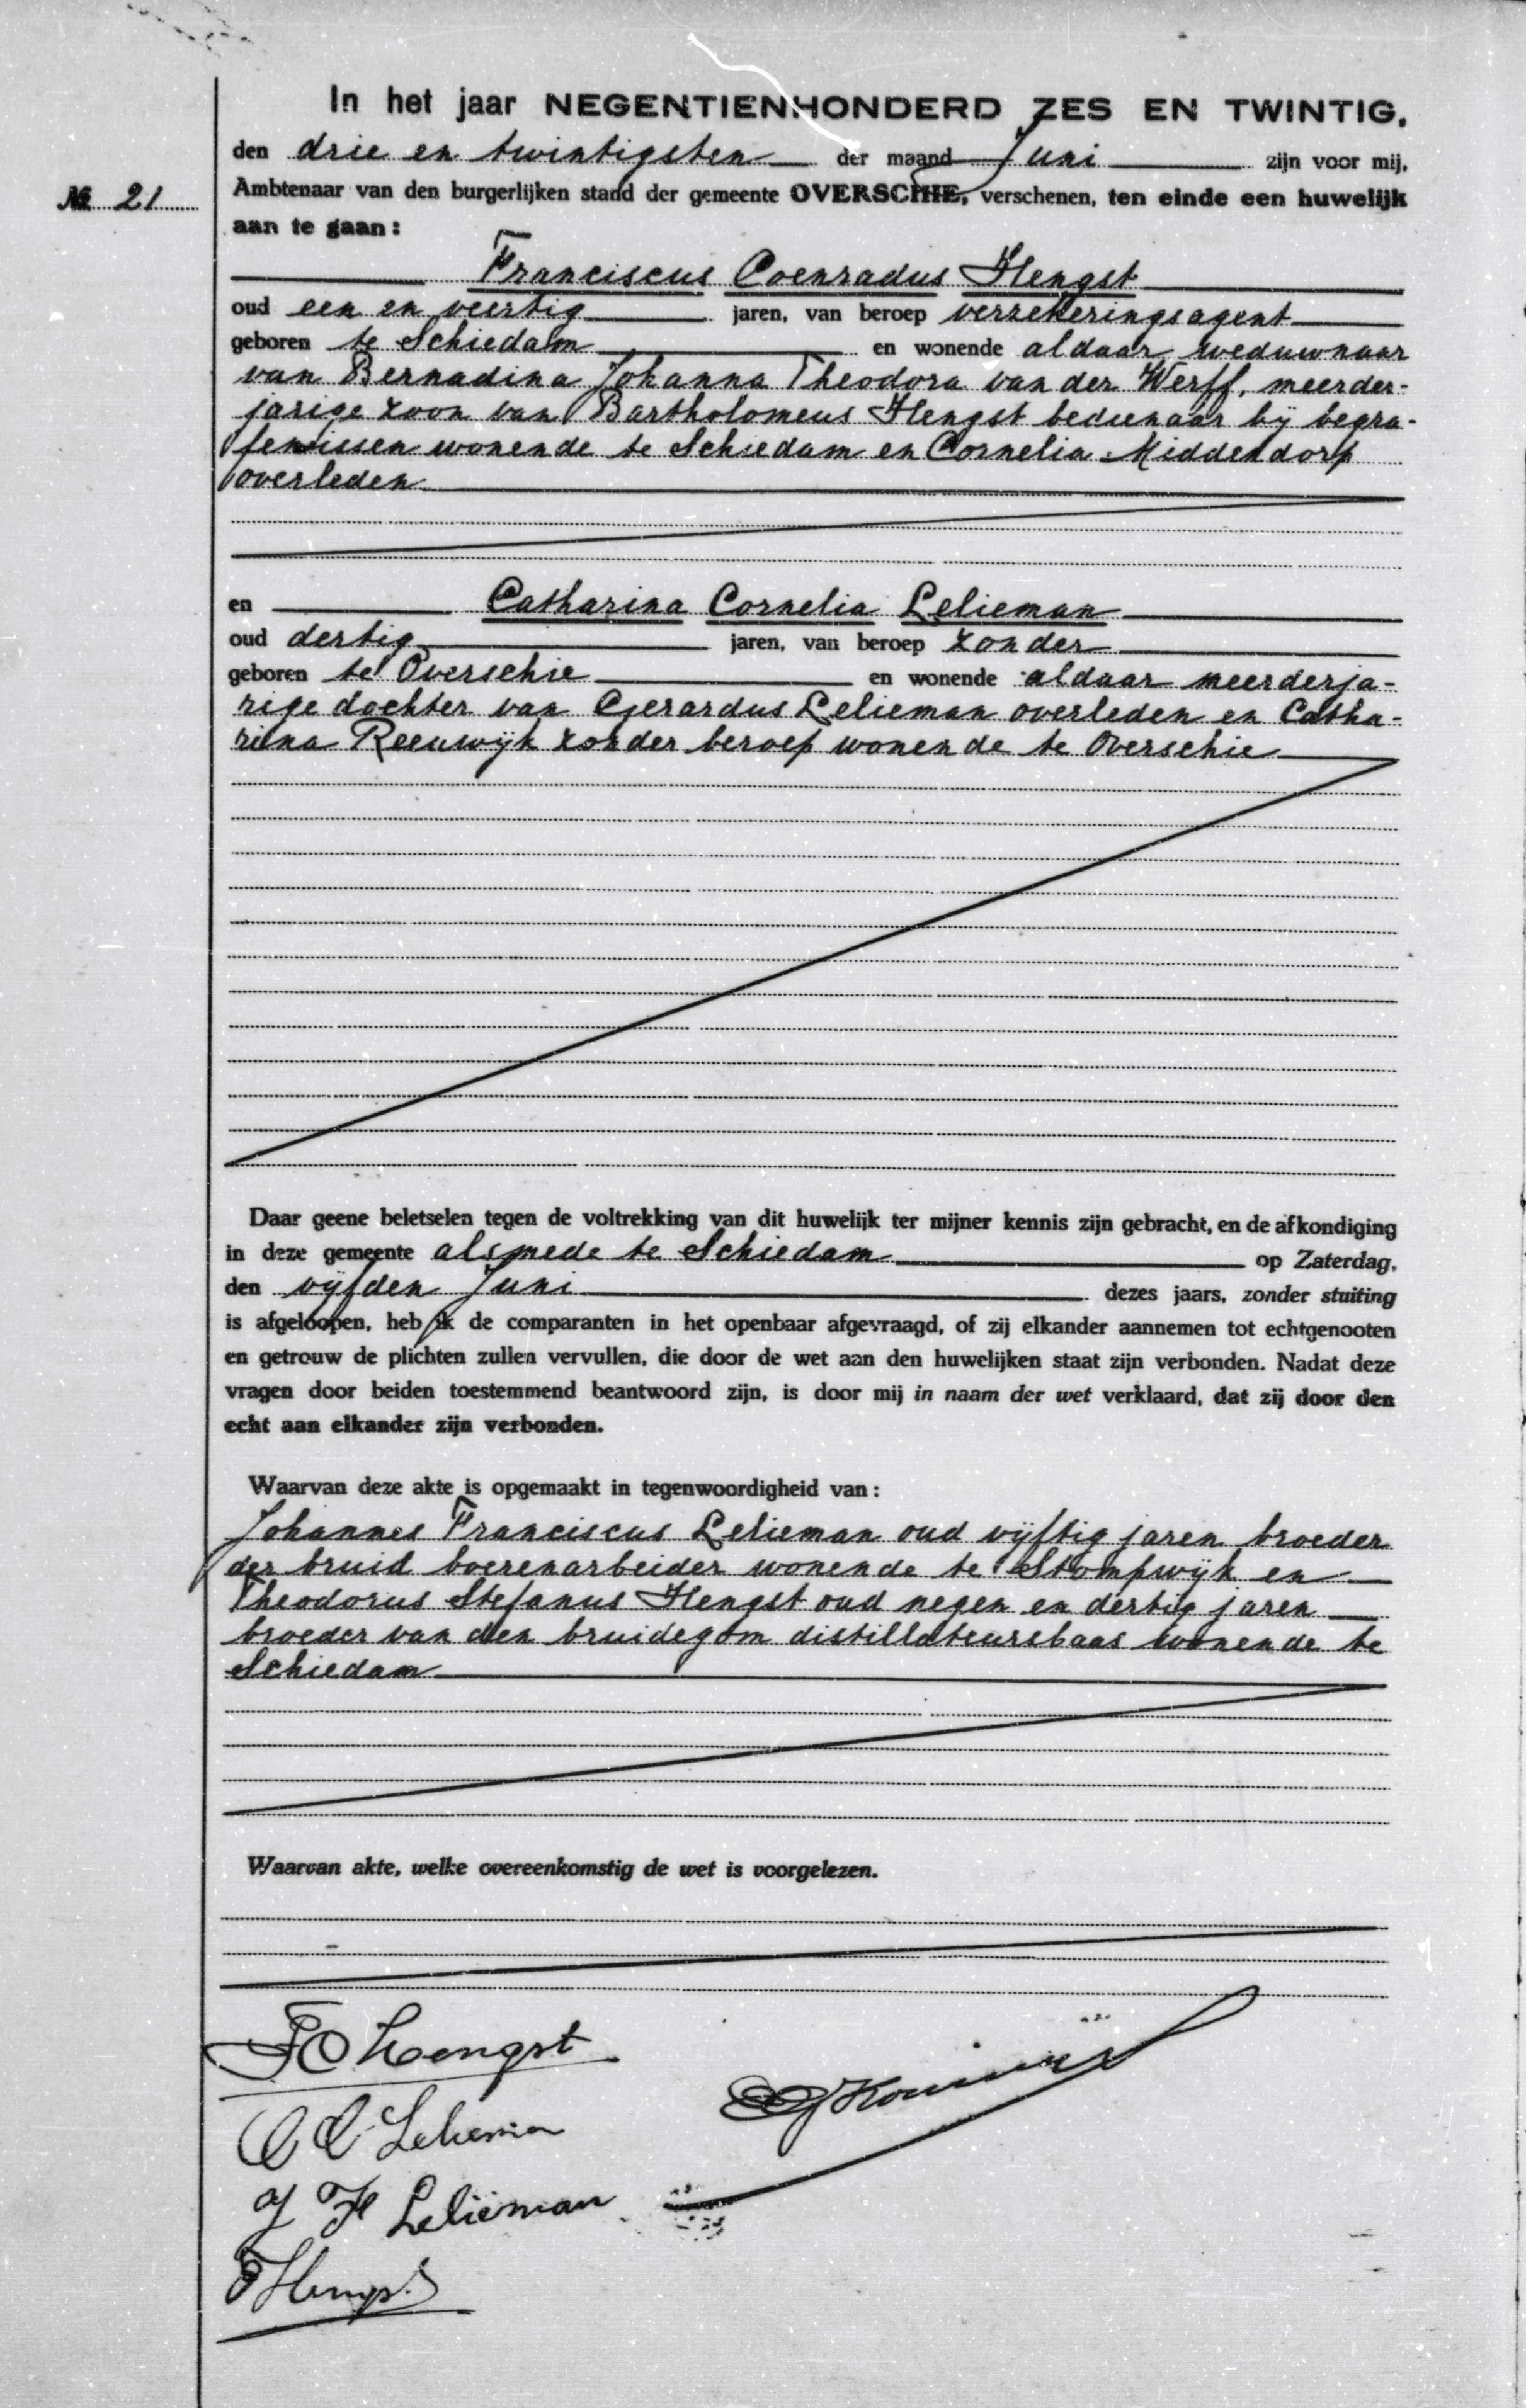 In het jaar NEGENTIENHONDERD ZES EN TWINTIG,
den drie en twintigsten der maand Juni zijn voor mij,
№ 21
Ambtenaar van den burgerlijken stand der gemeente OVERSCHIE, verschenen, ten einde een huwelijk
aan te gaan:
Franciscus Coenradus Hengst
oud een en veertig jaren, van beroep verzekeringsagent
geboren te Schiedam en wonende aldaar weduwnaar
van Bernadina Johanna Theodora van der Werff, meerder-
jarige zoon van Bartholomeus Hengst bedienaar bij begra-
fenissen wonende te Schiedam en Cornelia Middendorp
overleden
en Catharina Cornelia Lelieman
oud dertig jaren, van beroep zonder
geboren te Overschie en wonende aldaar meerderja-
rige dochter van Gerardus Lelieman overleden en Catha-
rina Reeuwijk zonder beroep wonende te Overschie
Daar geene beletselen tegen de voltrekking van dit huwelijk ter mijner kennis zijn gebracht, en de afkondiging
in deze gemeente alsmede te Schiedam op Zaterdag,
den vijfden Juni dezes jaars, zonder stuiting
is afgeloopen, heb ik de comparanten in het openbaar afgevraagd, of zij elkander aannemen tot echtgenooten
en getrouw de plichten zullen vervullen, die door de wet aan den huwelijken staat zijn verbonden. Nadat deze
vragen door beiden toestemmend beantwoord zijn, is door mij in naam der wet verklaard, dat zij door den
echt aan elkander zijn verbonden.
Waarvan deze akte is opgemaakt in tegenwoordigheid van:
Johannes Franciscus Lelieman oud vijftig jaren broeder
der bruid boerenarbeider wonende te Stompwijk en
Theodorus Stefanus Hengst oud negen en dertig jaren
broeder van den bruidegom distillateursbaas wonende te
Schiedam
Waarvan akte, welke overeenkomstig de wet is voorgelezen.
FC Hengst
C C Lelieman
J F Lelieman
T Hengst